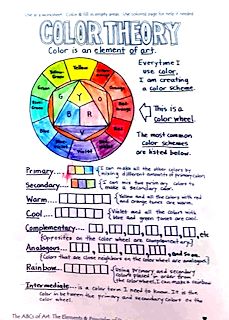 Use as a worksheet. Color & fill in empty areas. Use coloring page for help if needed.
COLOR THEORY
Color is an element of art.
Everytime I
use color,
I am creating
a color scheme.
This is a
color wheel.
The most common
color schemes
are listed below.
Yellow
Orange
Red
Violet
Blue
Green
Y
O
R
V
B
G
Primary
I can make all the other colors by
mixing different amounts of primary colors
Secondary
I can mix two primary colors to
make a Secondary color.
Warm
Yellow and all the colors with red
and orange tones are warm.
Cool
Violet and all the colors with
blue and green tones are cool.
Complementary
, etc
(Opposites on the color wheel are complementary)
Analogous
, and so on
(Colors that are close neighbors on the color wheel are analogous)
Rainbow
Using primary and secondary
colors placed in order from
the colorwheel, I can make a rainbow
Intermediate
is a color term I need to know. It is the
color in between the primary and secondary colors on the
color wheel.
The ABCs of Art: The Elements & Principles of